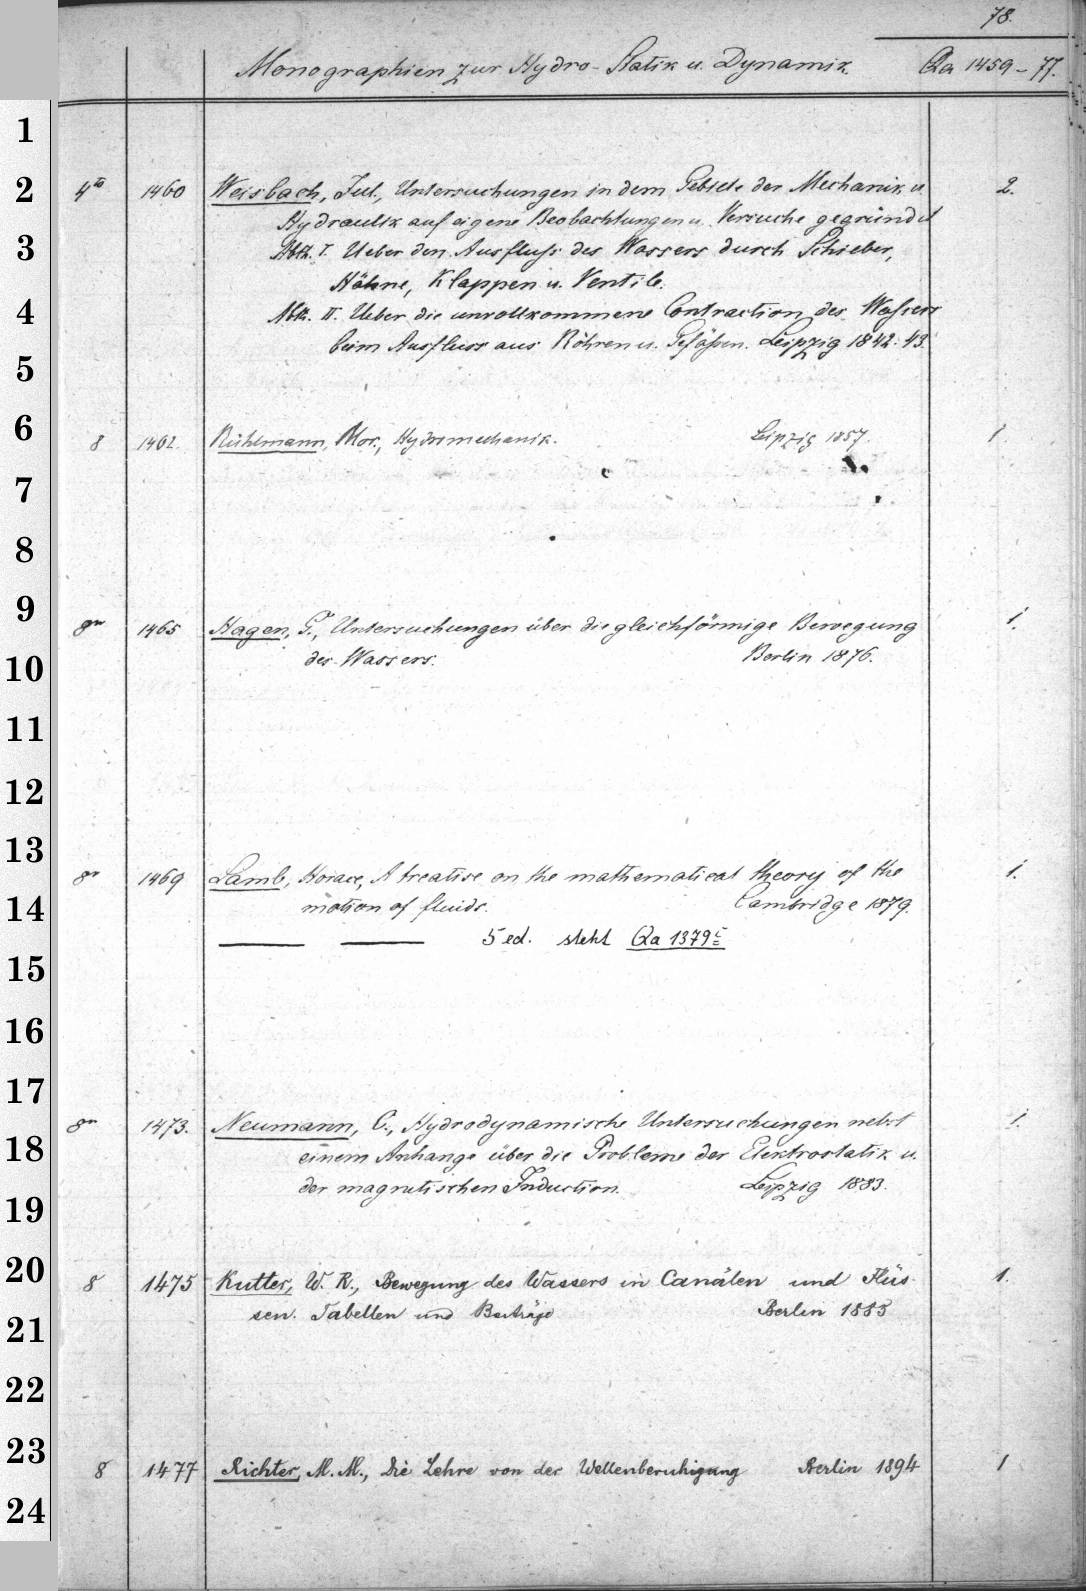 78.
Monographien zur Hydro-Statik u. Dynamik. Qa 1459-77.
1
2
3
4
5
6
7
8
9
10
11
12
13
14
15
16
17
18
19
20
21
22
23
24
4to 1460 Weisbach, Jul., Untersuchungen in dem Gebiete der Mechanik u. 2.
Hydraulik auf eigene Beobachtungen u. Versuche gegründet
Abth. I. Ueber den Ausfluss des Wassers durch Schieber,
Hähne, Klappen u. Ventile.
Abth. II. Ueber die unvollkommene Contraction des Wassers
beim Ausfluss aus Röhren u. Gefässen. Leipzig 1842. 43.
8 1462. Rühlmann, Mor., Hydromechanik. Leipzig 1857. 1.
8vo 1465 Hagen, G., Untersuchungen über die gleichförmige Bewegung 1.
des Wassers. Berlin 1876.
8vo 1469 Lamb, Horace, A treatise on the mathematical theory of the 1.
motion of fluids. Cambridge 1879.
— — 5 ed. steht Qa 1379c
8vo 1473. Neumann, C., Hydrodynamische Untersuchungen nebst 1.
einem Anhange über die Probleme der Elektrostatik u.
der magnetischen Induction. Leipzig 1883.
8 1475 Kutter, W. R., Bewegung des Wassers in Canälen und Flüs- 1.
sen. Tabellen und Beiträge Berlin 1885
8 1477 Richter, M. M., Die Lehre von der Wellenberuhigung Berlin 1894 1